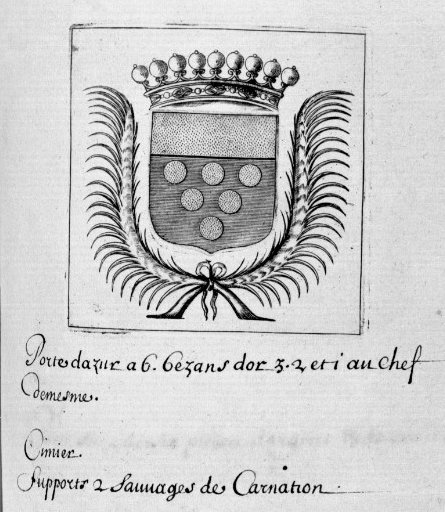 Porte dazur a 6. bezans dor 3. 2 et i au chef
demesme.
Cimier.
Supports 2 Sauuages de Carnation.